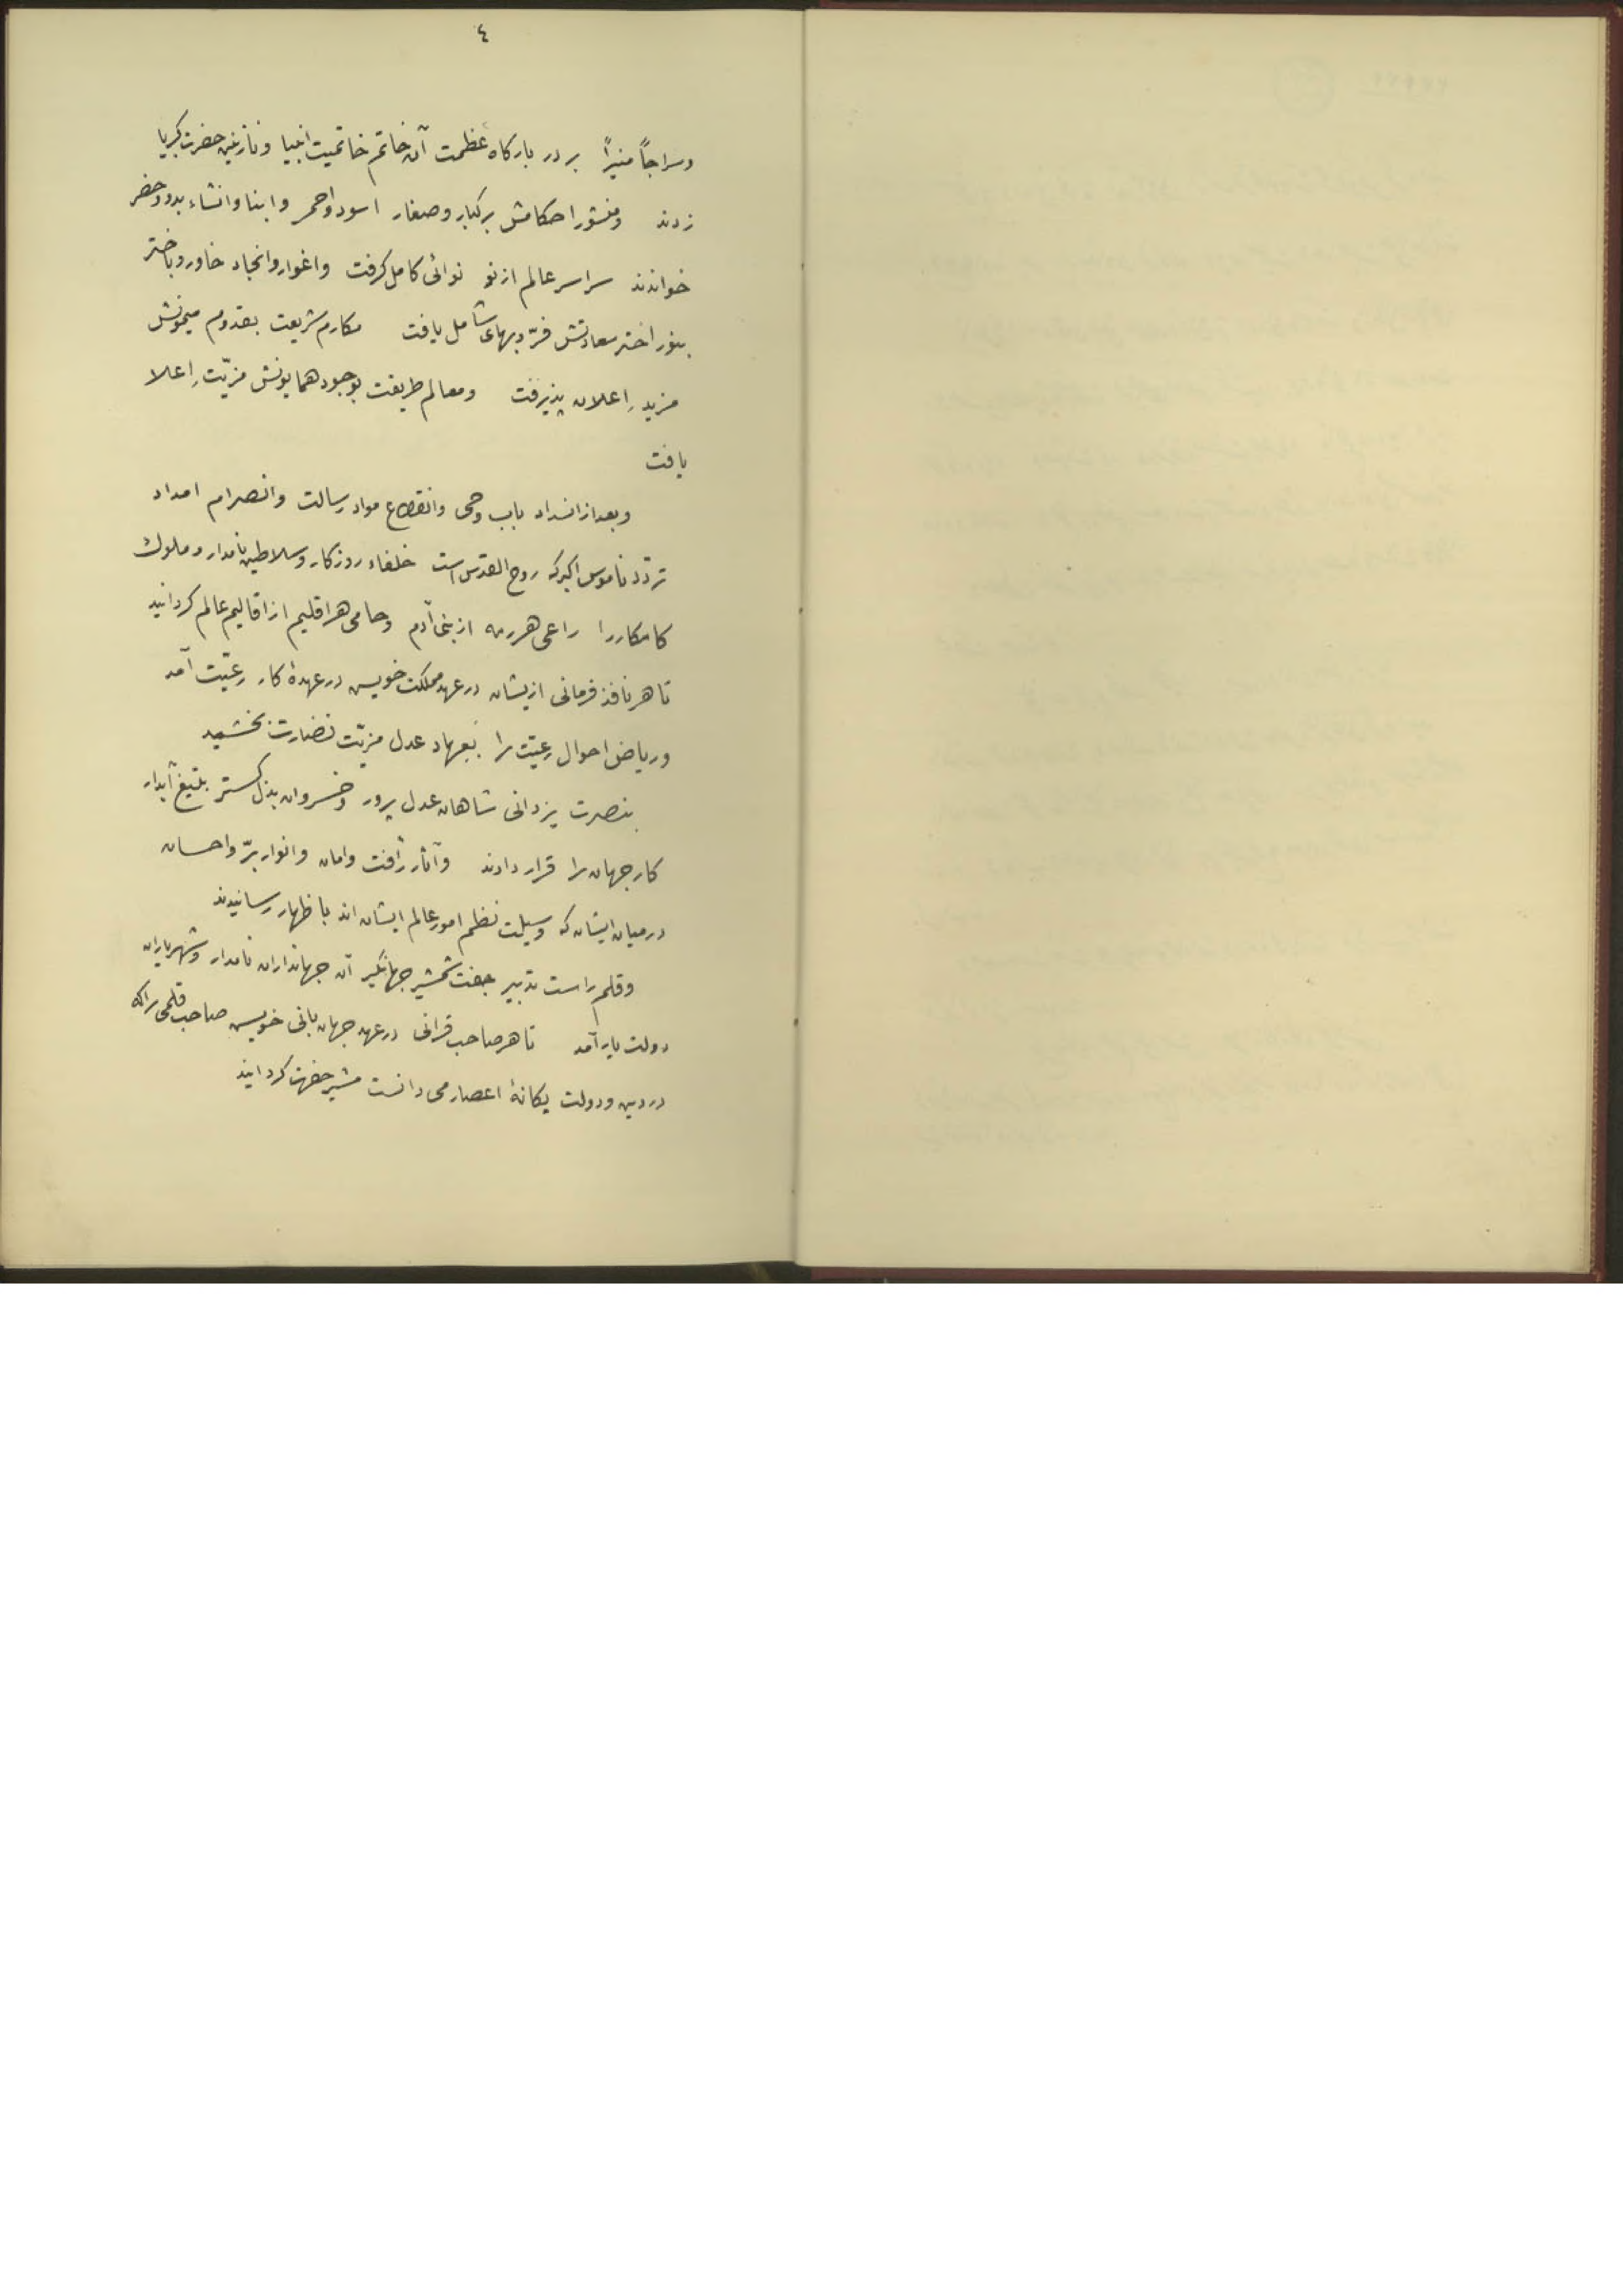 ٤
وسراجاً منیراً بر در بارکاه عظمت آن خاتم خاتمیت انبیا و نازنین حضرت کبریا
زدند ومنشور احکامش بر کبار وصغار اسود واحمر وابنا وانشاء بدو وحضر
خواندند سراسر عالم از نو نوائی کامل کرفت واغوار وانجاد خاور وباختر
بنور اختر سعادتش فرّ وبهای شامل یافت مکارم شریعت بقدوم میمونش
مزیدِ اعلان پذیرفت ومعالم طریقت بوجود همایونش مزیّتِ اعلا
یافت
وبعد از انسداد باب وحی وانقطاع مواد رسالت وانصرام امداد
تردّد ناموس اکبر که روح القدس است خلفاء روزکار وسلاطین نامدار وملوک
کامکار را راعی هر رمه از بنی آدم وحامی هر اقلیم از اقالیم عالم کردانید
تا هر نافذ فرمانی ازیشان در عهد مملکت خویس در عهدهٔ کار رعیّت آمد
وریاض احوال رعیّت را بعهاد عدل مزیّت نضارت بخشید
بنصرت یزدانی شاهان عدل پرور وخسروان بذل کستر بتیغ آبدار
کار جهان را قرار دادند وآثار رأفت وامان وانوار برّ واحسان
در میان ایشان که وسیلت نظم امور عالم ایشان اند باظهار رسانیدند
وقلم راست تدبیر جفت شمشیر جهانکیر آن جهانداران نامدار وشهریاران
دولت یار آمد تا هر صاحب قرانی در عهد جهان بانی خویس صاحب قلمی را که
در دین ودولت یکانهٔ اعصار می دانست مشیر حضرت کردانید